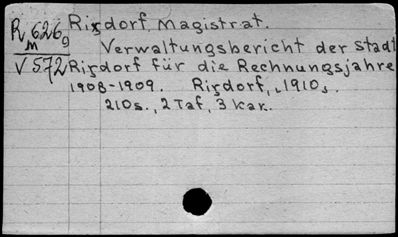 R 626 g Rixdorf, Magistrat.
m Verwaltungsbericht der Stadt
V 572 Rixdorf für die Rechnungsjahre
1908-1909. Rixdorf, ‹1910›.
210s., 2 Taf, 3 Kar.